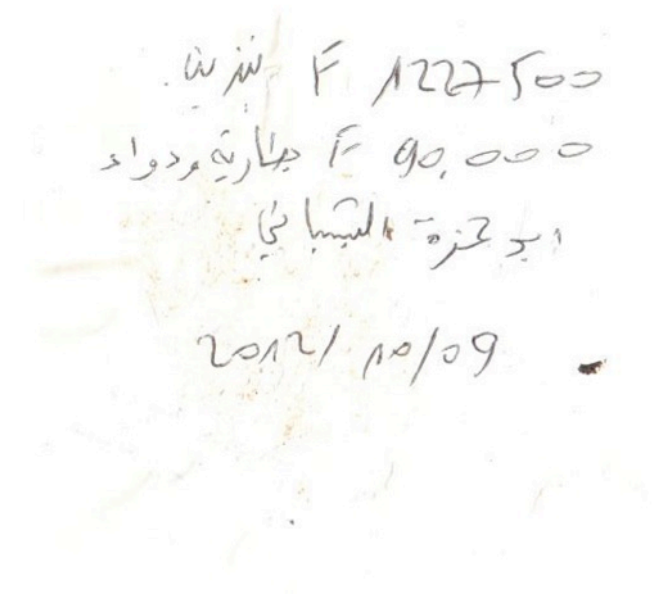 1227500 F بنزين
90.000 F بطارية ودواء
ابو حمزة الشنباني
2012/10/09